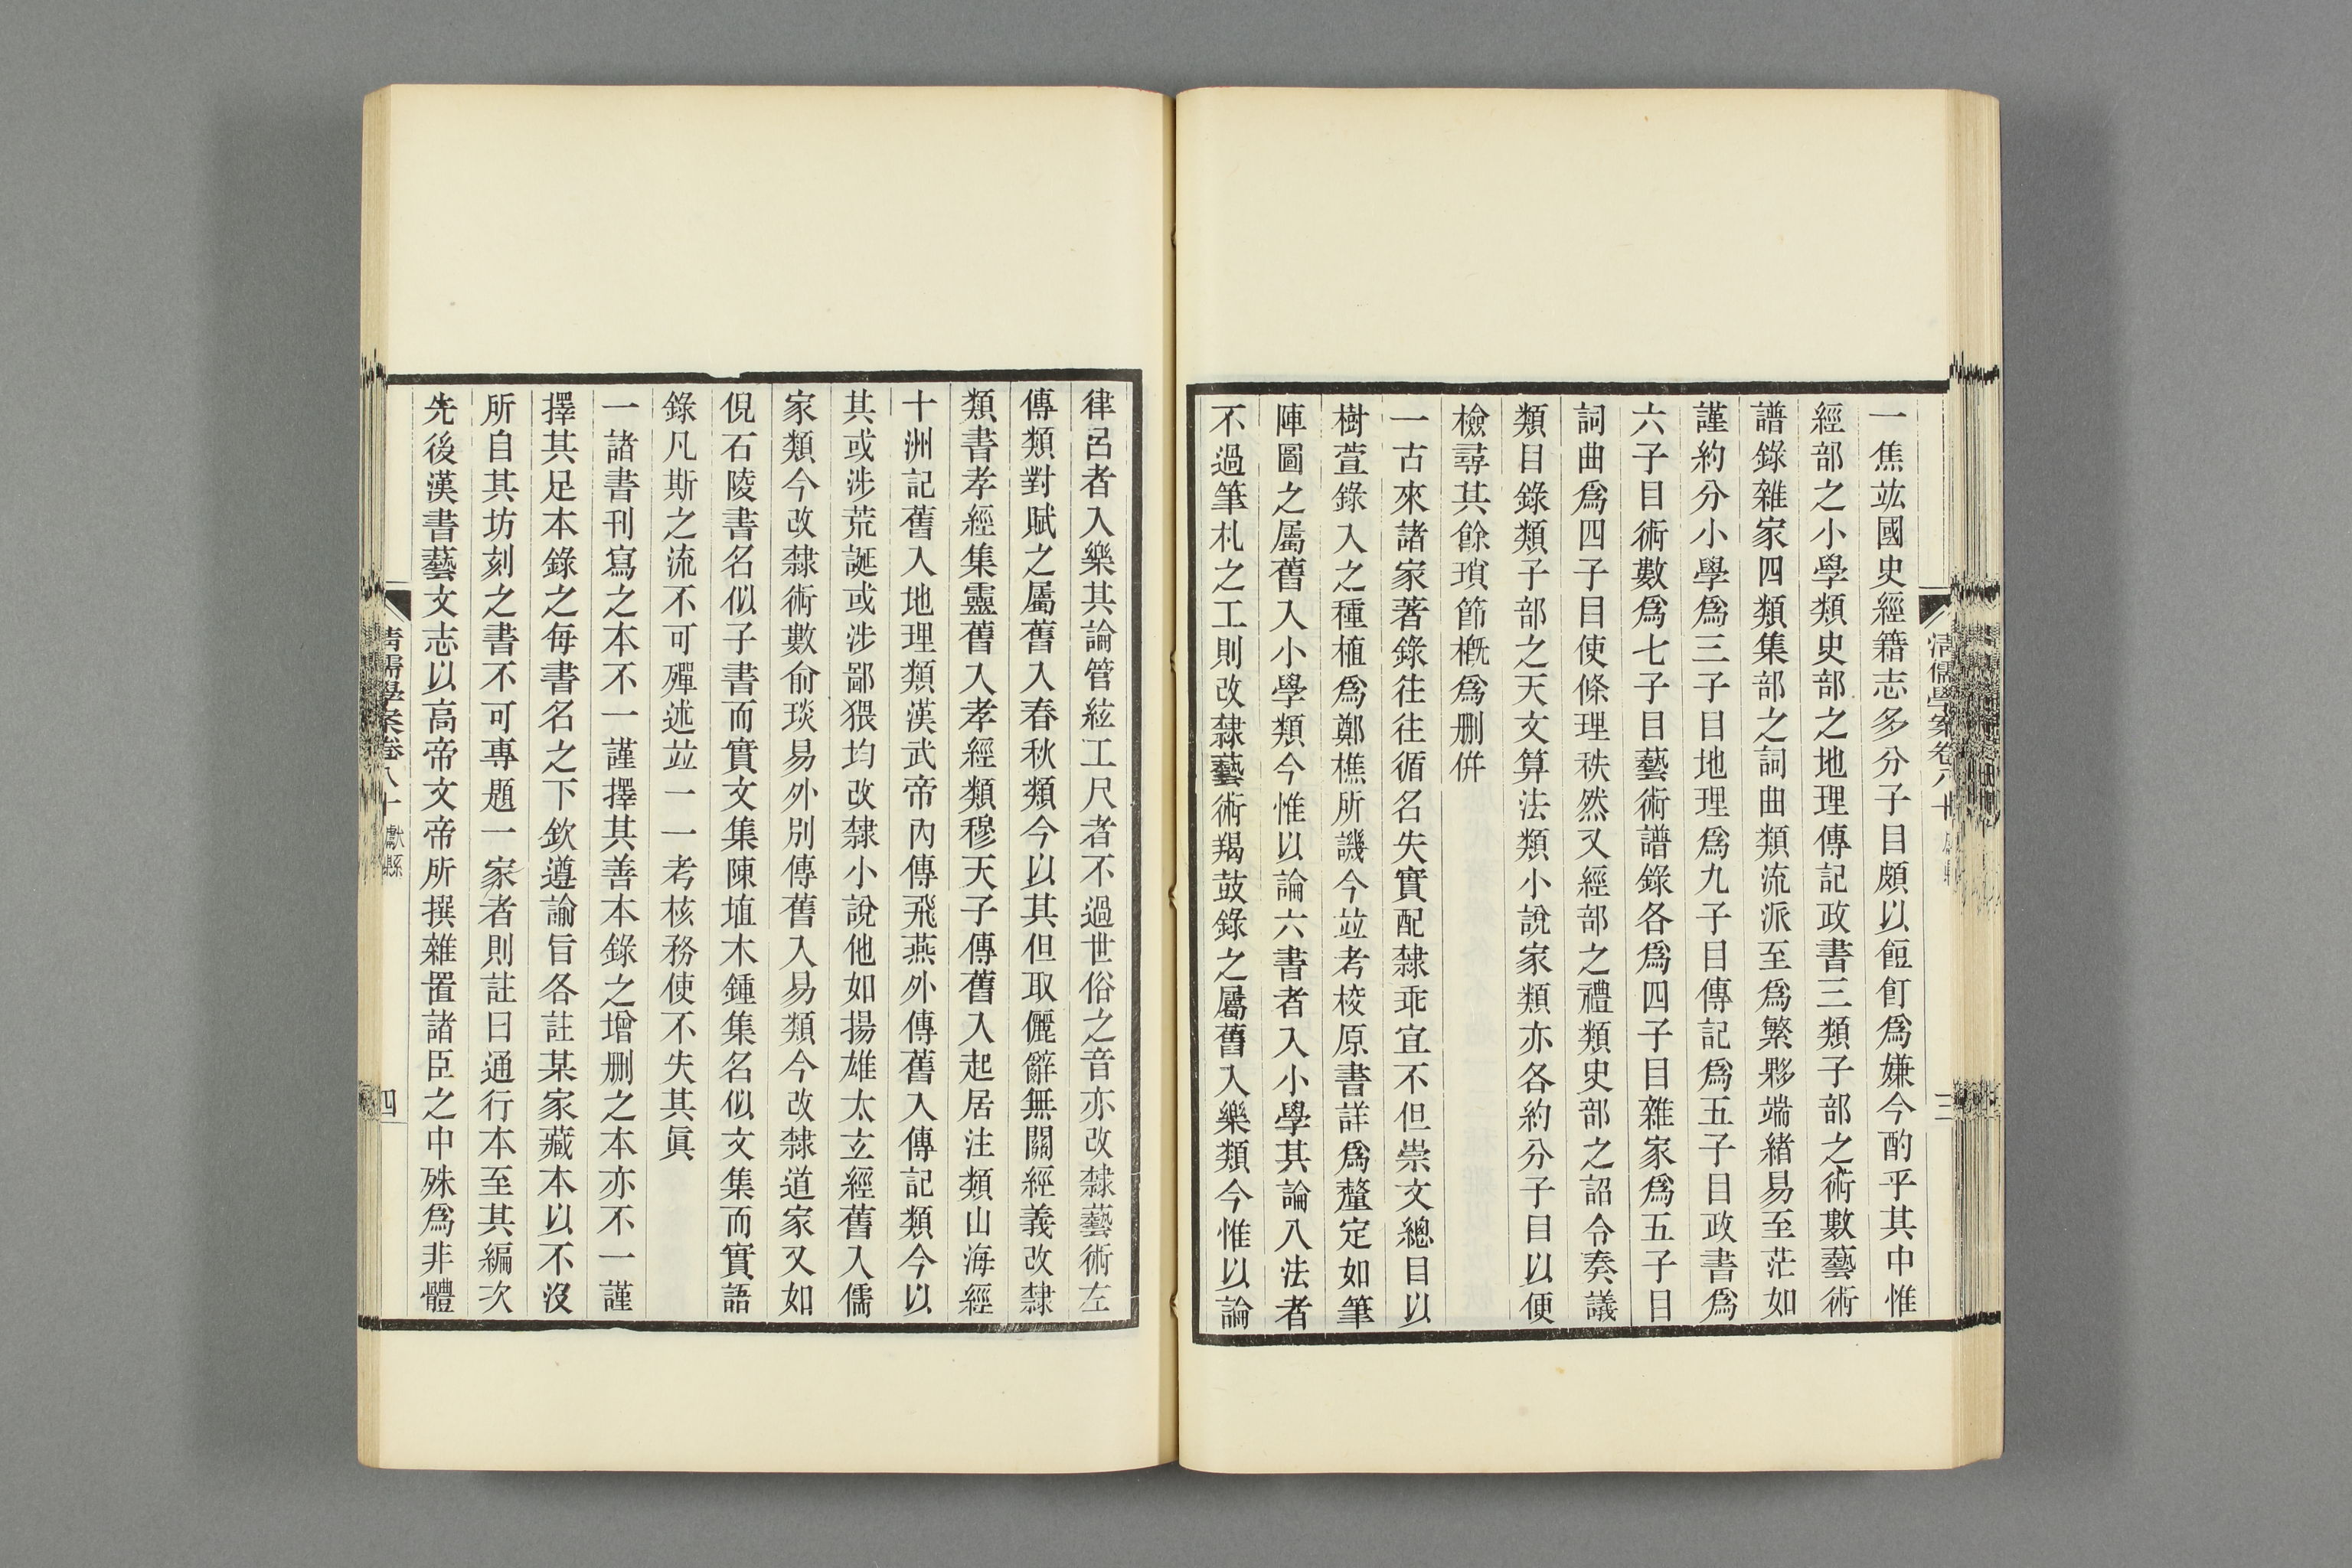 一焦竑國史經籍志多分子目頗以餖飣爲嫌今酌乎其中惟
經部之小學類史部之地理傳記政書三類子部之術數藝術
譜錄雜家四類集部之詞曲類流派至爲繁夥端緖易至茫如
謹約分小學爲三子目地理爲九子目傳記爲五子目政書爲
六子目術數爲七子目藝術譜錄各爲四子目雜家爲五子目
詞曲爲四子目使條理秩然又經部之禮類史部之詔令奏議
類目錄類子部之天文算法類小說家類亦各約分子目以便
檢尋其餘瑣節槪爲删倂
一古來諸家著錄往往循名失實配隸乖宜不但崇文總目以
樹萱錄入之種植爲鄭樵所譏今竝考校原書詳爲釐定如筆
陣圖之屬舊入小學類今惟以論六書者入小學其論八法者
不過筆札之工則改隸藝術羯鼓錄之屬舊入樂類今惟以論
律呂者入樂其論管絃工尺者不過世俗之音亦改隸藝術左
傳類對賦之屬舊入春秋類今以其但取儷辭無關經義改隸
類書孝經集靈舊入孝經類穆天子傳舊入起居注類山海經
十洲記舊入地理類漢武帝內傳飛燕外傳舊入傳記類今以
其或涉荒誕或涉鄙猥均改隸小說他如揚雄太玄經舊入儒
家類今改隸術數俞琰易外別傳舊入易類今改隸道家又如
倪石陵書名似子書而實文集陳埴木鍾集名似文集而實語
錄凡斯之流不可殫述竝一一考核務使不失其眞
一諸書刊寫之本不一謹擇其善本錄之增删之本亦不一謹
擇其足本錄之每書名之下欽遵諭旨各註某家藏本以不沒
所自其坊刻之書不可專題一家者則註曰通行本至其編次
先後漢書藝文志以高帝文帝所撰雜置諸臣之中殊爲非體
清儒學案卷八十
獻縣
四
清儒學案卷八
三